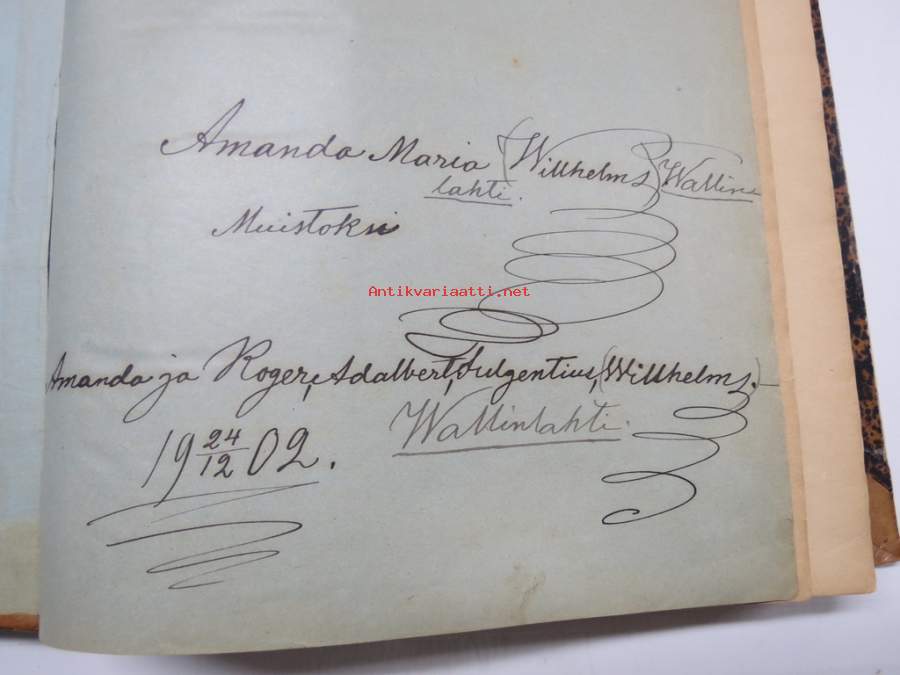 Amanda Maria (Willhelms) Wallin
lahti.
Muistoksi
Antikvariaatti.net
Amanda ja Roger, Adalbert, Fulgentius, (Willhelms.)
Wallinlahti.
19 24/12 02.